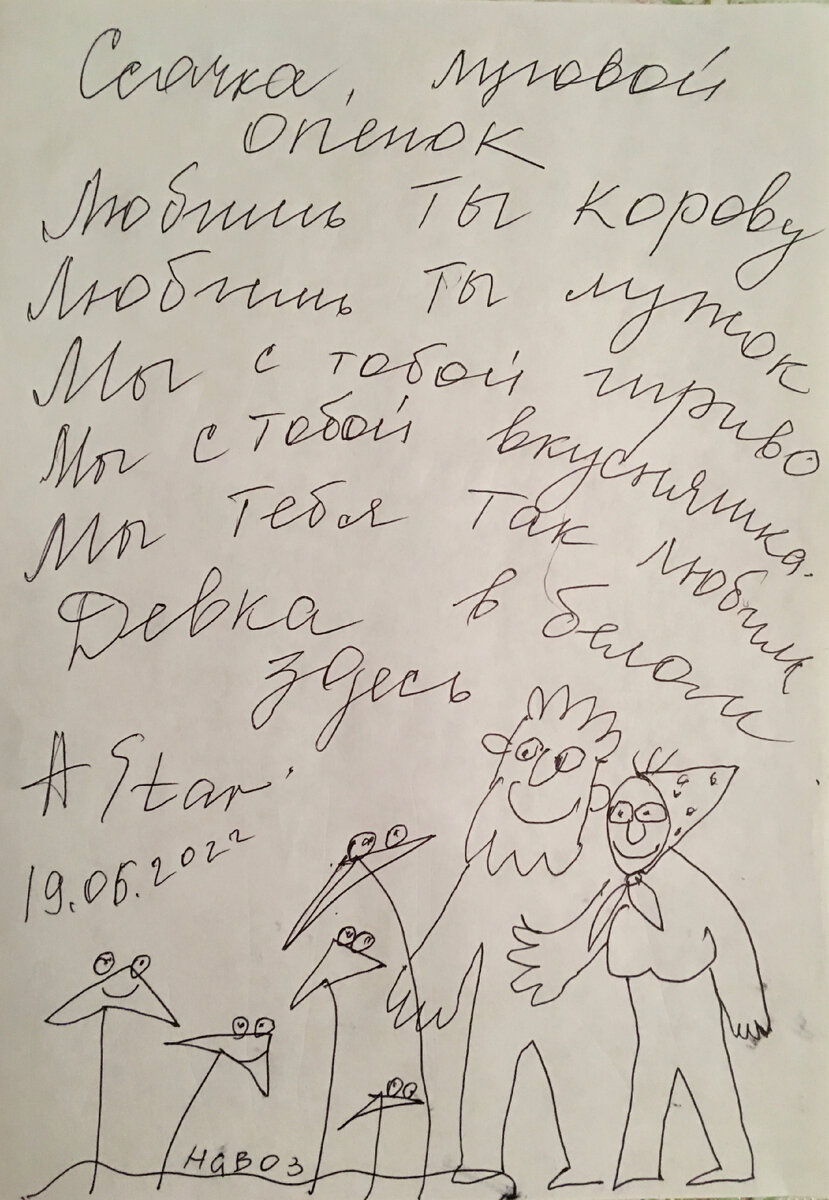 Ссачка, луговой
опенок
Любишь ты корову
Любишь ты лужок
Мы с тобой игриво
Мы с тобой вкусняшка.
Мы тебя так любим
Девка в белом
здесь
A Star.
19.06.2022
НАВОЗ